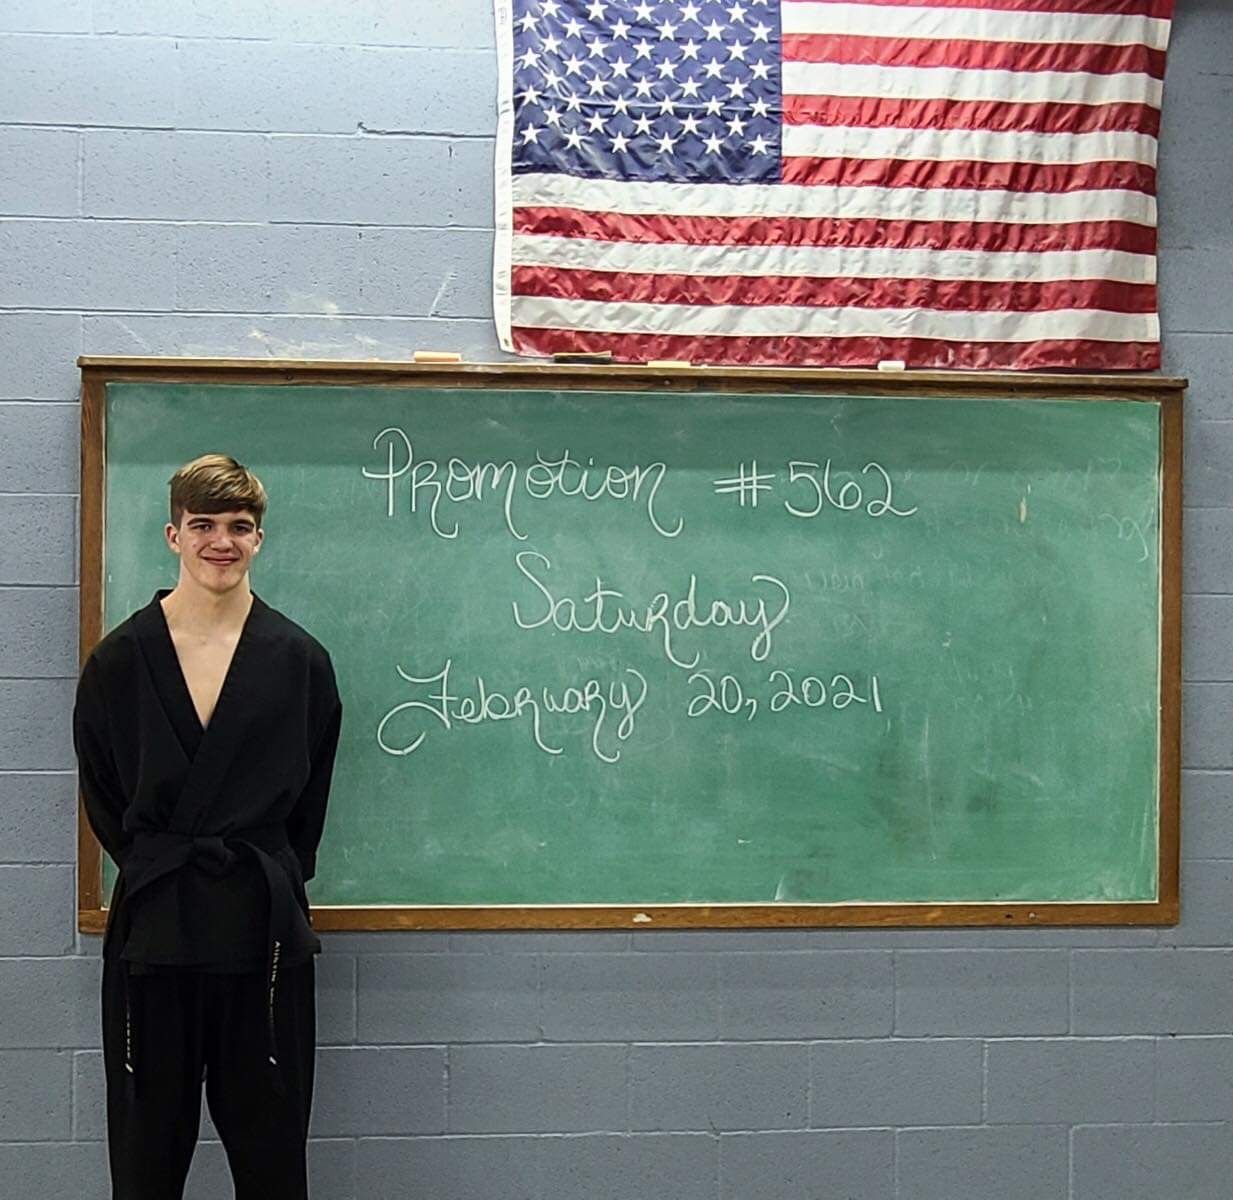 Promotion #562
Saturday
February 20, 2021
AUSTIN